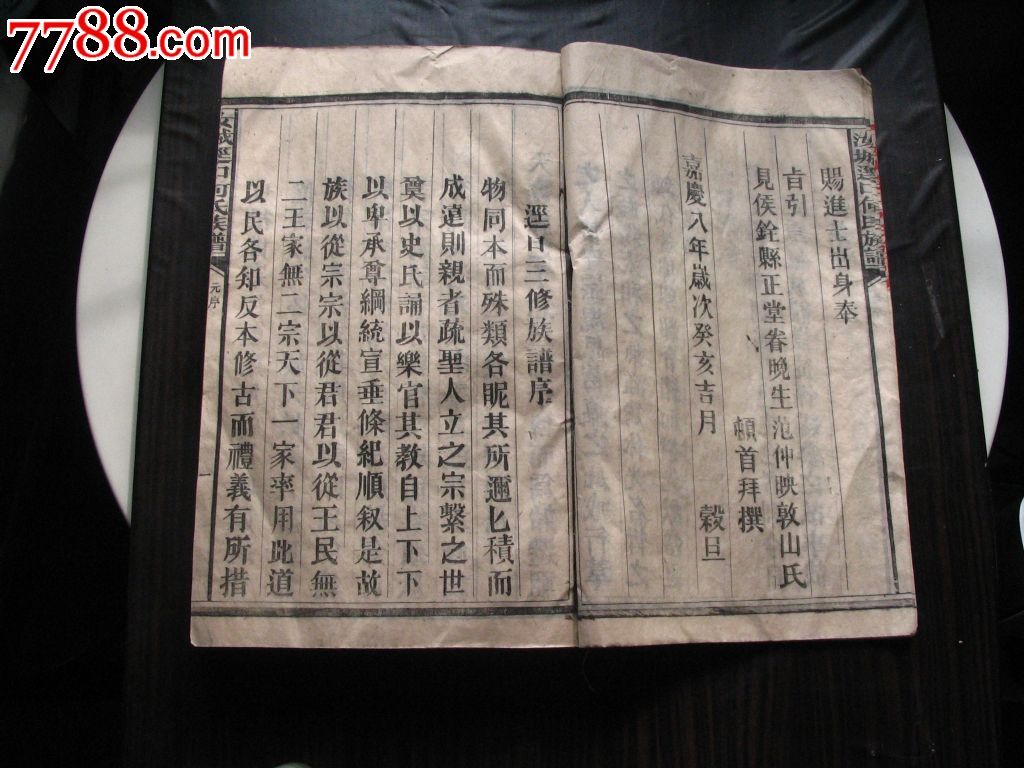 7788.com
汝城逕口何氏族譜
賜進士出身奉
旨引
見侯銓縣正堂眷晚生范仲映敦山氏
頓首拜撰
嘉慶八年歲次癸亥吉月 穀旦
逕口三修族譜序
物同本而殊類各昵其所邇匕積而
成遠則親者疏聖人立之宗繫之世
奠以史氏誦以樂官其教自上下下
以卑承尊綱統宣垂條紀順叙是故
族以從宗宗以從君君以從王民無
二王家無二宗天下一家率用此道
以民各知反本修古而禮義有所措
汝城逕口何氏族譜
元序
一